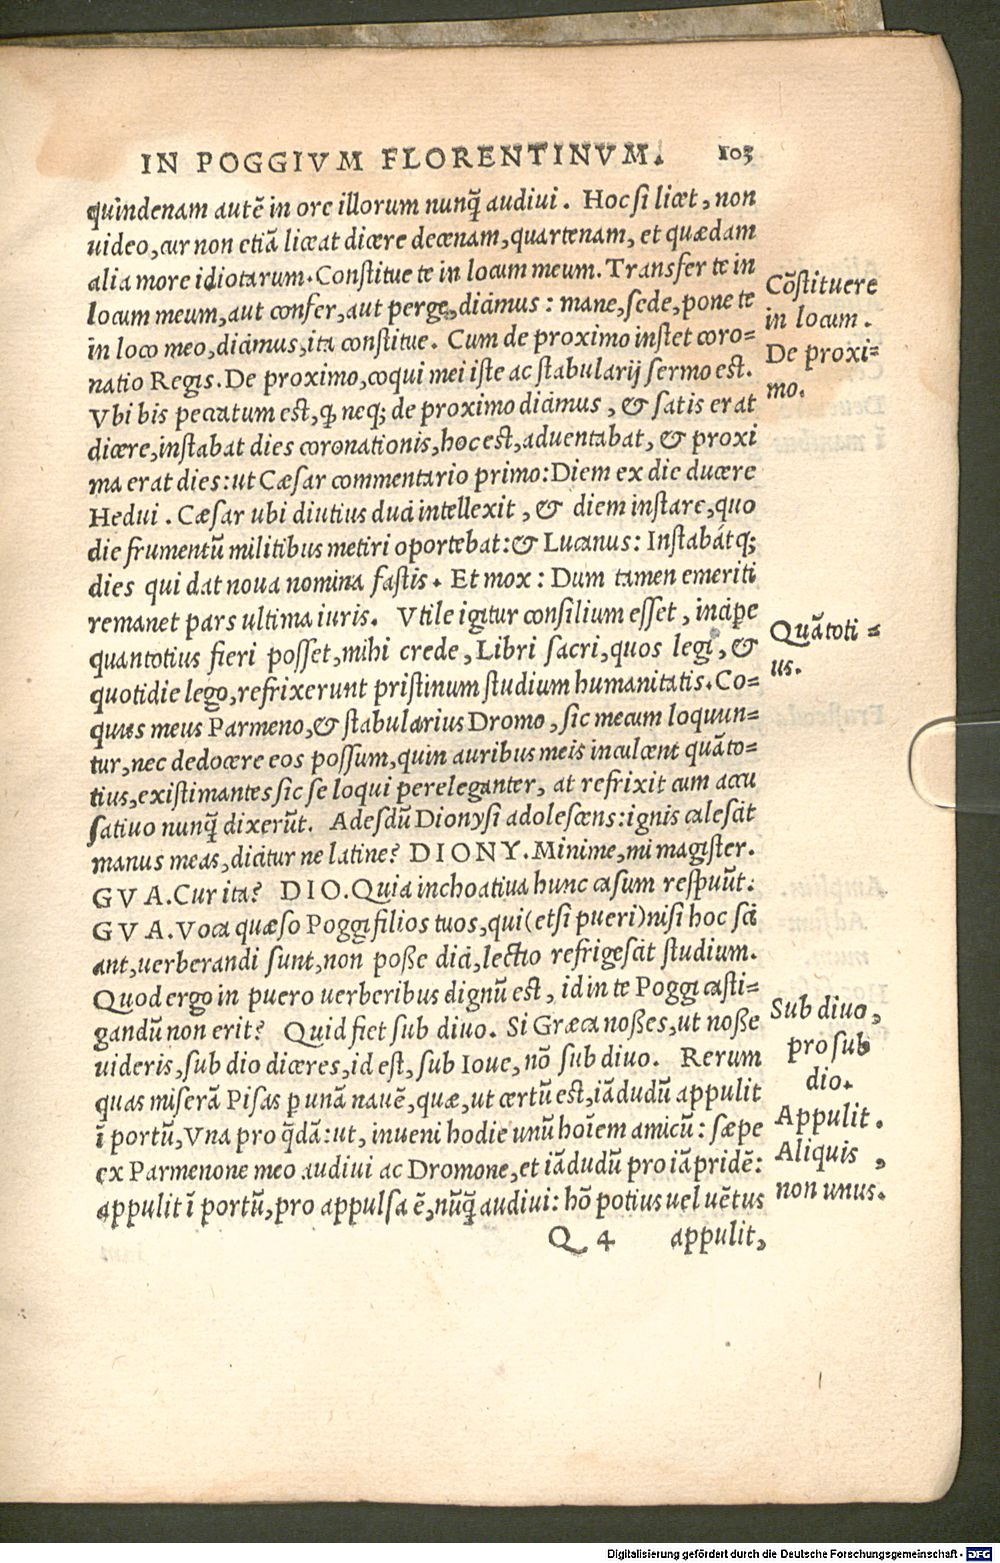 IN POGGIVM FLORENTINVM. 103
quindenam autē in ore illorum nunq̃ audiui. Hoc si licet, non
uideo, cur non etiā liceat dicere decenam, quartenam, et quædam
alia more idiotarum. Constitue te in locum meum. Transfer te in
locum meum, aut confer, aut perge, dicimus: mane, sede, pone te
in loco meo, dicimus, ita constitue. Cum de proximo instet coro=
natio Regis. De proximo, coqui mei iste ac stabularij sermo est.
Vbi bis peccatum est, ꝙ neq; de proximo dicimus, & satis erat
dicere, instabat dies coronationis, hoc est, aduentabat, & proxi
ma erat dies: ut Cæsar commentario primo: Diem ex die ducere
Hedui. Cæsar ubi diutius duci intellexit, & diem instare, quo
die frumentū militibus metiri oportebat: & Lucanus: Instabát q;
dies qui dat noua nomina fastis. Et mox: Dum tamen emeriti
remanet pars ultima iuris. Vtile igitur consilium esset, incipe
quantotius fieri posset, mihi crede, Libri sacri, quos legi, &
quotidie lego, refrixerunt pristinum studium humanitatis. Co=
quus meus Parmeno, & stabularius Dromo, sic mecum loquun=
tur, nec dedocere eos possum, quin auribus meis inculcent quāto=
tius, existimantes sic se loqui pereleganter, at refrixit cum accu
satiuo nunq̃ dixerūt. Adesdū Dionysi adolescens: ignis calescit
manus meas, dicitur ne latine? DIONY. Minime, mi magister.
GVA. Cur ita? DIO. Quia inchoatiua hunc casum respuūt.
GVA. Voca quæso Poggi filios tuos, qui (etsi pueri) nisi hoc sci
ant, uerberandi sunt, non posse dici, lectio refrigescit studium.
Quod ergo in puero uerberibus dignū est, id in te Poggi casti=
gandū non erit? Quid fiet sub diuo. Si Græca nosses, ut nosse
uideris, sub dio diceres, id est, sub Ioue, nō sub diuo. Rerum
quas miserā Pisas p unā nauē, quæ, ut certū est, iādudū appulit
ī portū, Vna pro q̃dā: ut, inueni hodie unū hoīem amicū: sæpe
ex Parmenone meo audiui ac Dromone, et iādudū pro iā pridē:
appulit ī portū, pro appulsa ē, nūq̃ audiui: hō potius uel uētus
Q 4 appulit,
Cōstituere
in locum.
De proxi=
mo.
Quātoti=
us.
Sub diuo,
pro sub
dio.
Appulit.
Aliquis,
non unus.
Digitalisierung gefördert durch die Deutsche Forschungsgemeinschaft - DFG